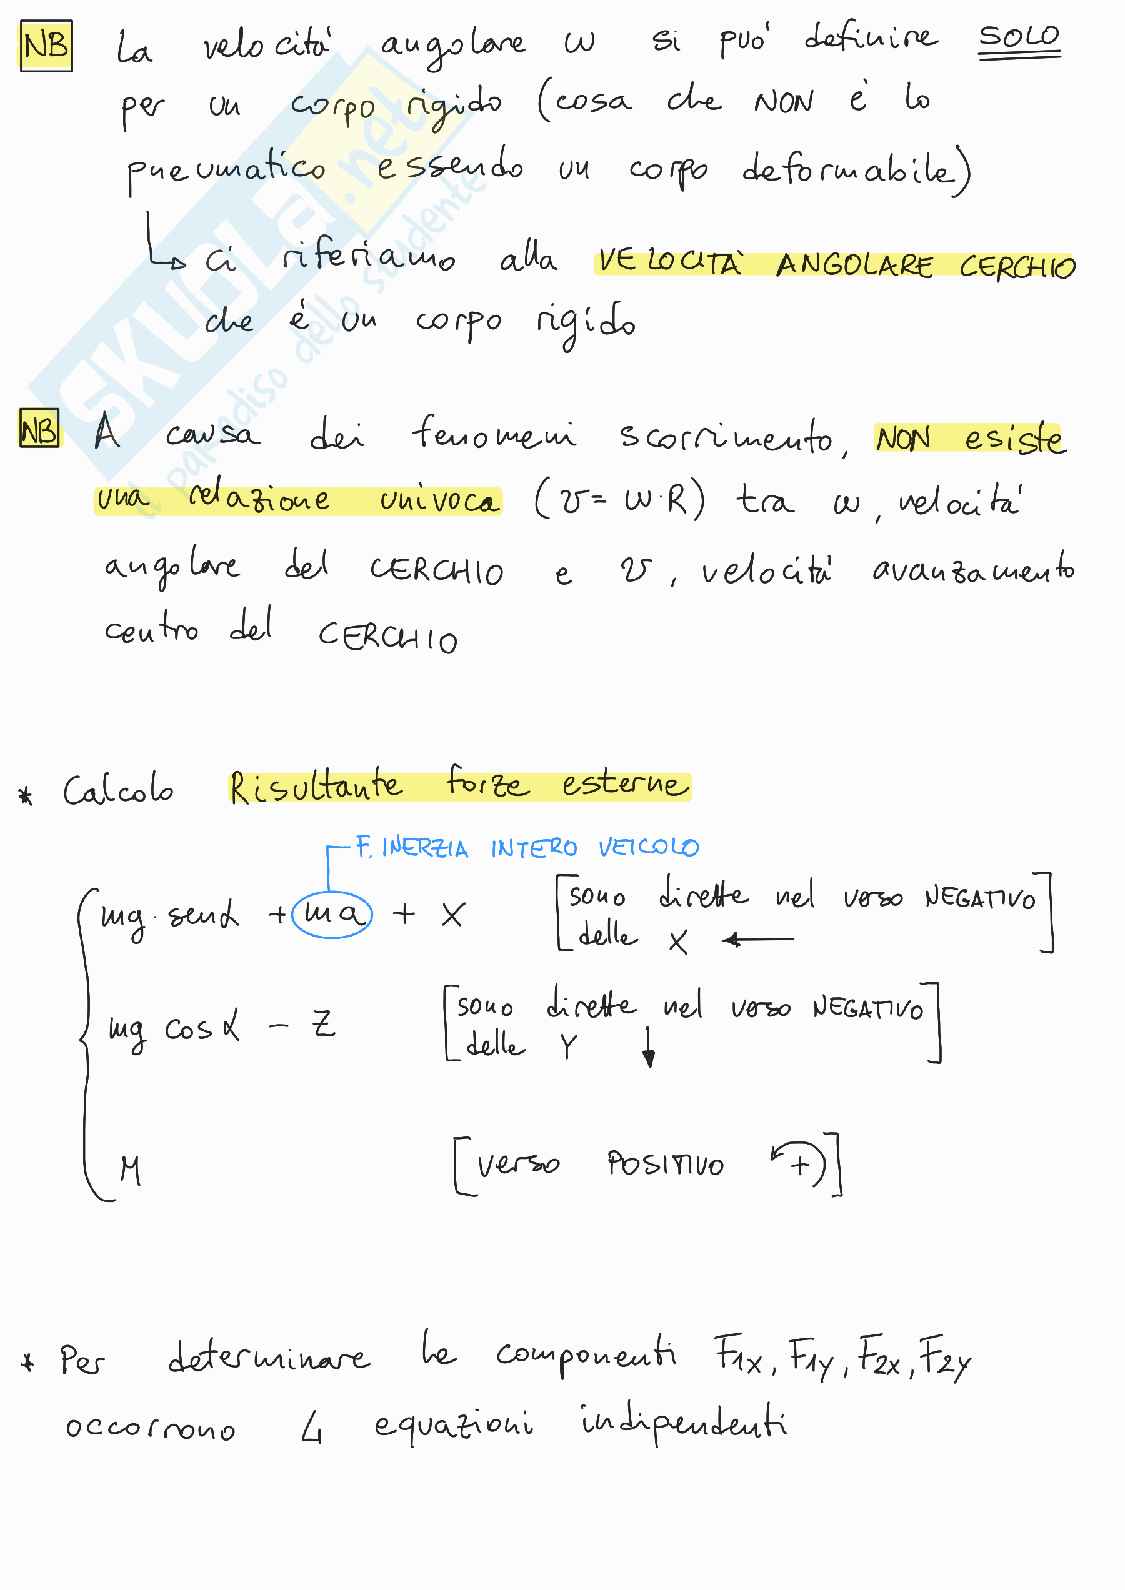 NB La velocità angolare ω si può definire SOLO
per un corpo rigido (cosa che NON è lo
pneumatico essendo un corpo deformabile)
↳ ci riferiamo alla VELOCITÀ ANGOLARE CERCHIO
che è un corpo rigido
NB A causa dei fenomeni scorrimento, NON esiste
una relazione univoca (v = ω·R) tra ω, velocità
angolare del CERCHIO e v, velocità avanzamento
centro del CERCHIO
* Calcolo Risultante forze esterne
F. INERZIA INTERO VEICOLO
mg · senα + ma + X [sono dirette nel verso NEGATIVO
delle X ←]
mg cosα - Z [sono dirette nel verso NEGATIVO
delle Y ↓]
M [verso POSITIVO +]
* Per determinare le componenti F1x, F1y, F2x, F2y
occorrono 4 equazioni indipendenti
SKUOLA.net
il paradiso dello studente